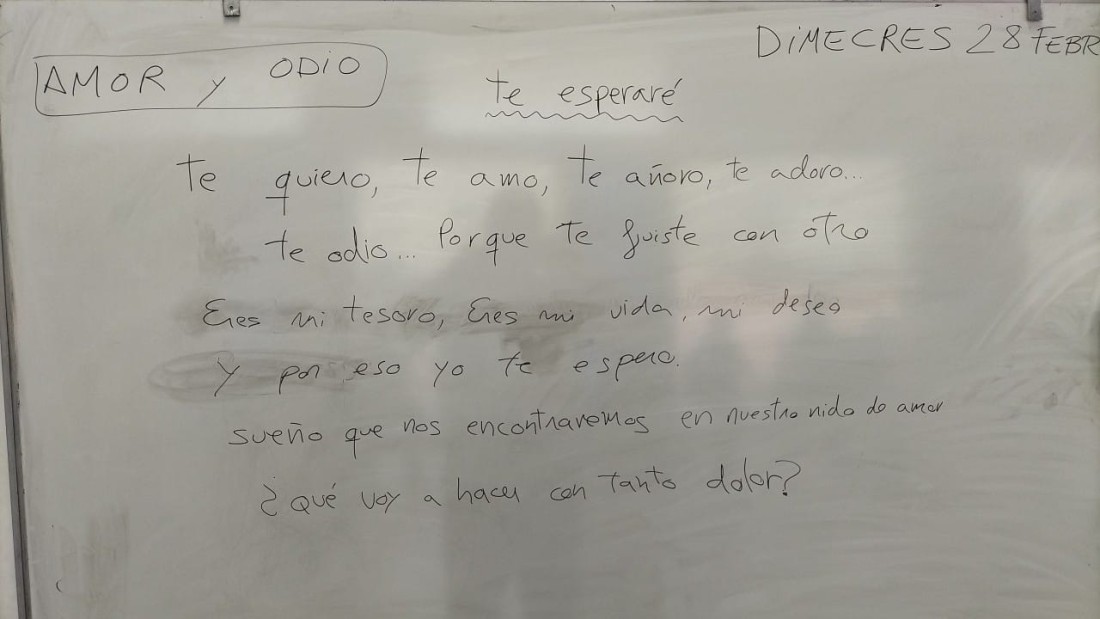 DIMECRES 28 FEBR
AMOR y ODIO
te esperaré
Te quiero, te amo, te añoro, te adoro...
te odio... Porque te fuiste con otro
Eres mi tesoro, Eres mi vida, mi deseo
Y por eso yo te espero.
sueño que nos encontraremos en nuestro nido de amor
¿Qué voy a hacer con tanto dolor?